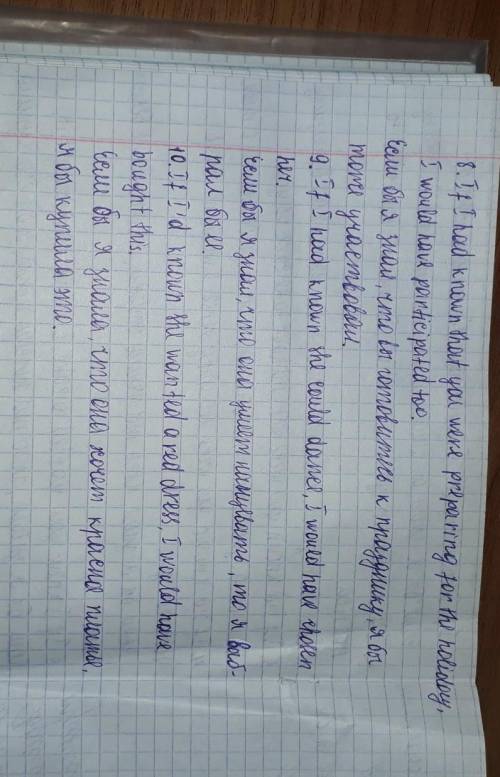 8. If I had known that you were preparing for the holiday,
I would have participated too.
Если бы я знал, что вы готовитесь к празднику, я бы
тоже участвовал.
9. If I had known she could dance, I would have chosen
her.
Если бы я знал, что она умеет танцевать, то я выб-
рал бы её.
10. If I'd known she wanted a red dress, I would have
bought this.
Если бы я знала, что она хочет красное платье,
я бы купила это.